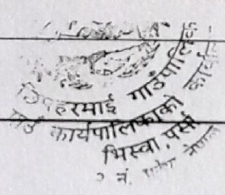 छिपहरमाई गाउँपालिका
गाउँ कार्यपालिकाको कार्यालय
भिस्वा, पर्सा
२ नं. प्रदेश नेपाल